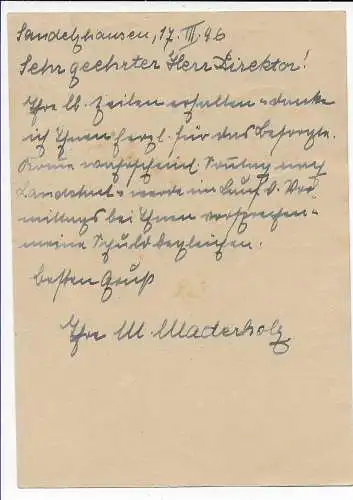 Sandelzhausen, 17. III. 46
Sehr geehrter Herr Direktor!
Ihre lb. Zeilen erhalten u. danke
ich Ihnen herzl. für das Besorgte.
Komme wahrscheinl. Sonntag nach
Landshut u. werde im Lauf d. Vor-
mittags bei Ihnen vorsprechen u.
meine Schuld begleichen.
Besten Gruß
Ihre M. Maderholz